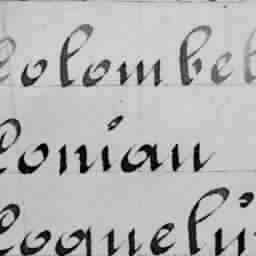 Colombel
Conian
Coquelj